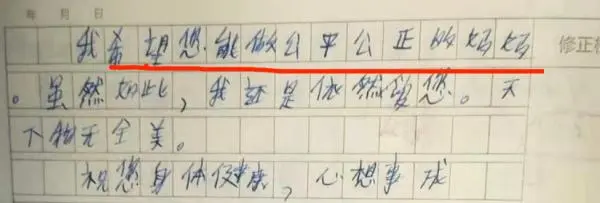 年 月 日
我希望您能做公平公正的妈妈
修正
。虽然如此，我还是依然爱您。天
下物无全美。
祝您身体健康，心想事成